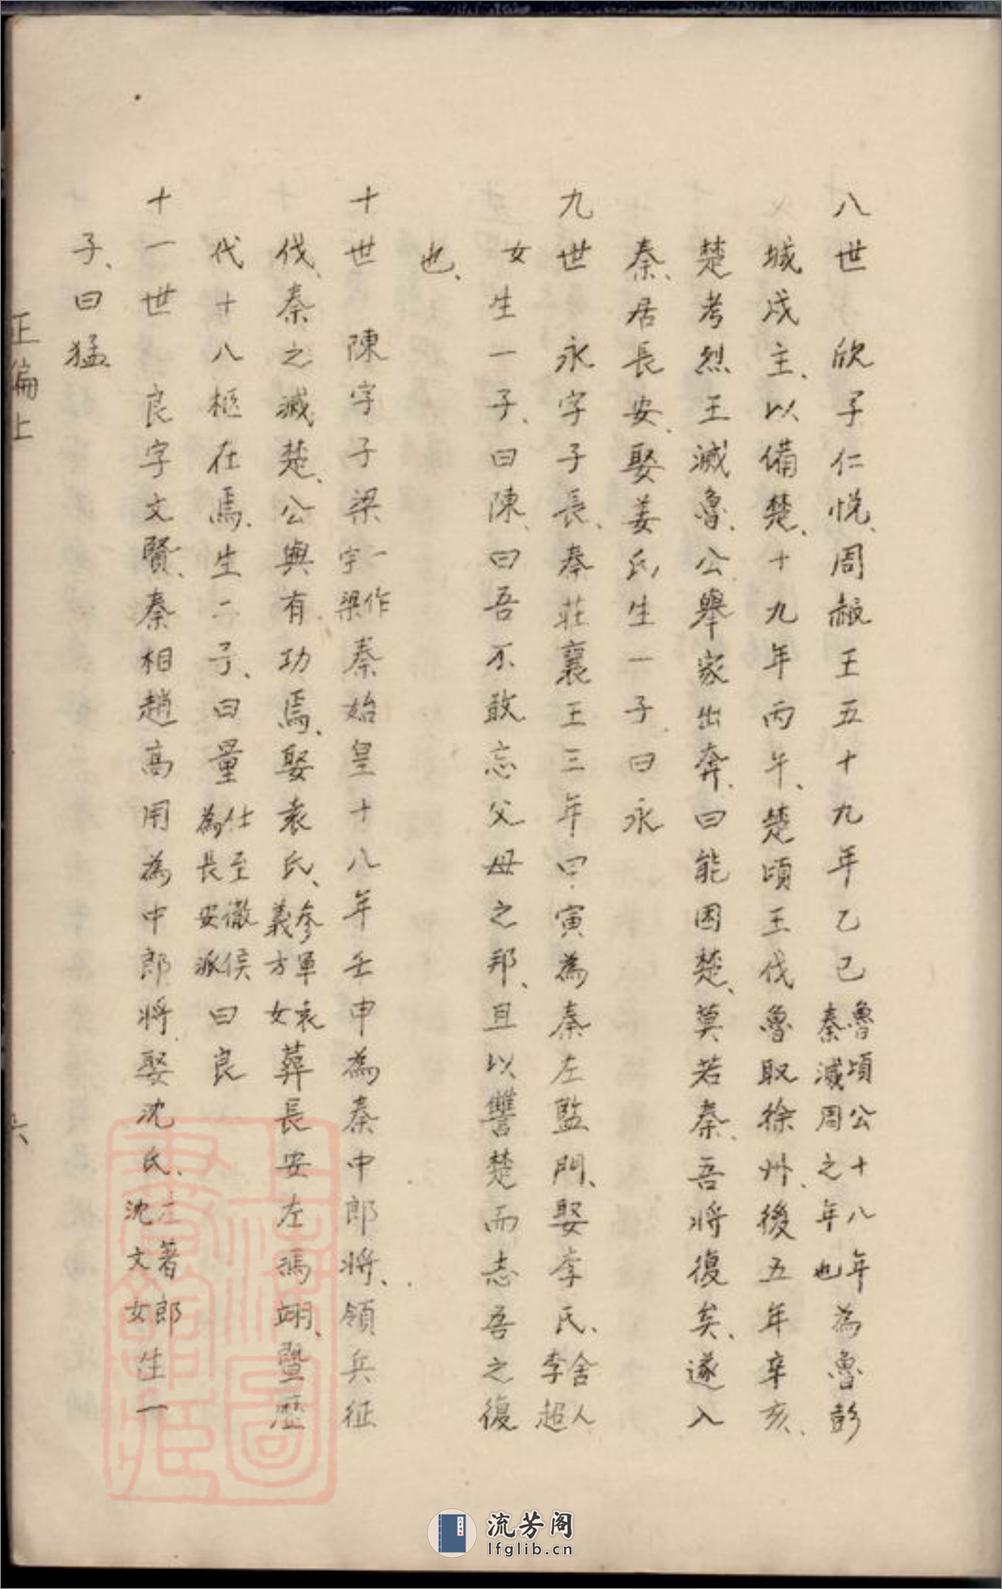 八世　欣子仁悦、周赧王五十九年乙巳魯頃公十八年秦滅周之年也為魯彭
城戍主、以備楚、十九年丙午、楚頃王伐魯取徐州、後五年辛亥、
楚考烈王滅魯、公舉家出奔、曰能困楚、莫若秦、吾將復矣、遂入
秦、居長安、娶姜氏生一子曰永
九世　永字子長、秦莊襄王三年甲寅為秦左監門、娶李氏、舍人李超
女生一子、曰陳、曰吾不敢忘父母之邦、且以讐楚而志吾之復
也、
十世　陳字子梁一作字梁秦始皇十八年壬申為秦中郎將、領兵征
伐、秦之滅楚、公與有功焉、娶袁氏、參軍袁義方女葬長安左馮翊、暨歷
代十八柩在焉、生二子、曰量仕至徹侯為長安派曰良
十一世　良字文賢、秦相趙高用為中郎將娶沈氏、左著郎沈文女生一
子、曰猛
正編上
六
流芳阁
lfglib.cn